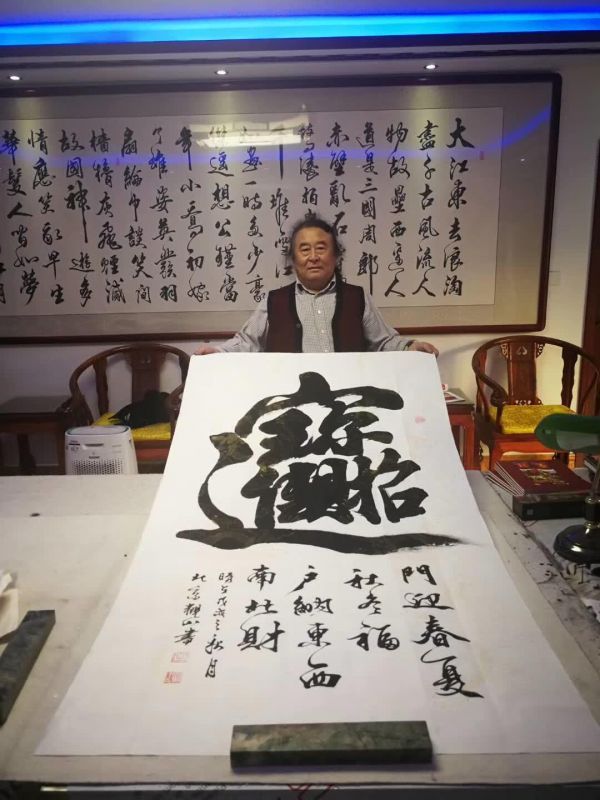 大江東去浪淘
盡千古風流人
物故壘西邊人
道是三國周郎
赤壁亂石
驚濤拍
堆雪江
畫一時多少豪
傑遥想公瑾當
年小喬初嫁
了雄姿英發羽
扇綸巾談笑間
檣櫓灰飛煙滅
故國神遊多
情應笑我早生
華髮人間如夢
月
招財進寶
門迎春夏
秋冬福
户納東西
南北財
時在戊戌之秋月
北京 書